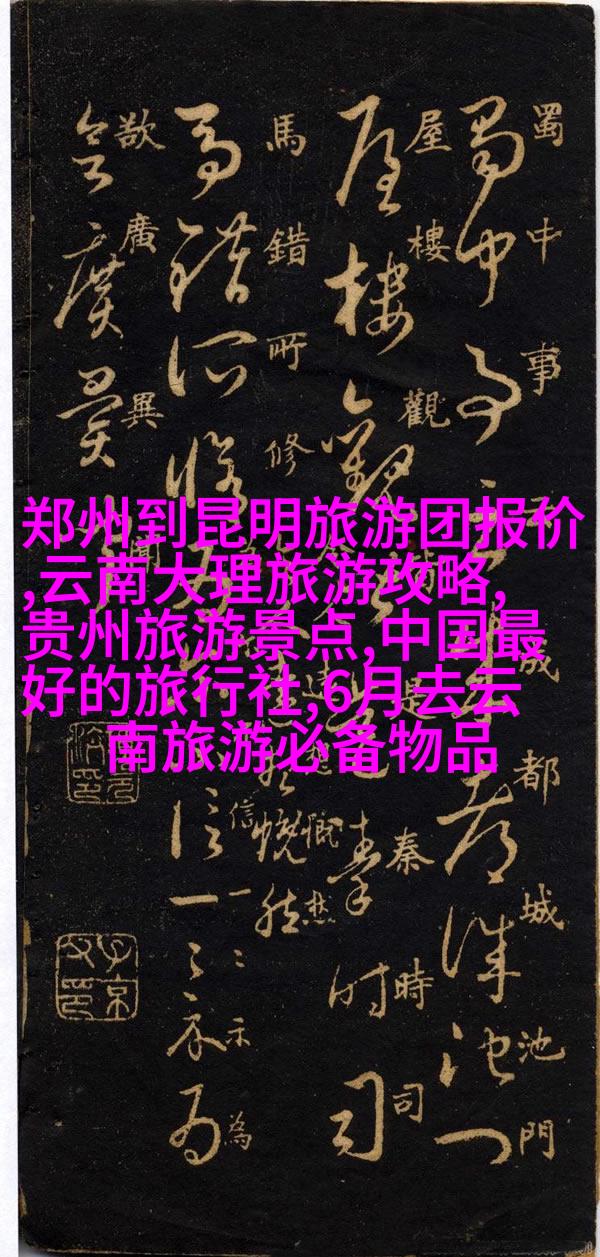 郑州到昆明旅游团报价
,云南大理旅游攻略,
贵州旅游景点,中国最
好的旅行社,6月去云
南旅游必备物品
蜀中事成都城池門
屋樓觀是秦時司
馬錯所修
慨然
信一一示為
欲廣異聞